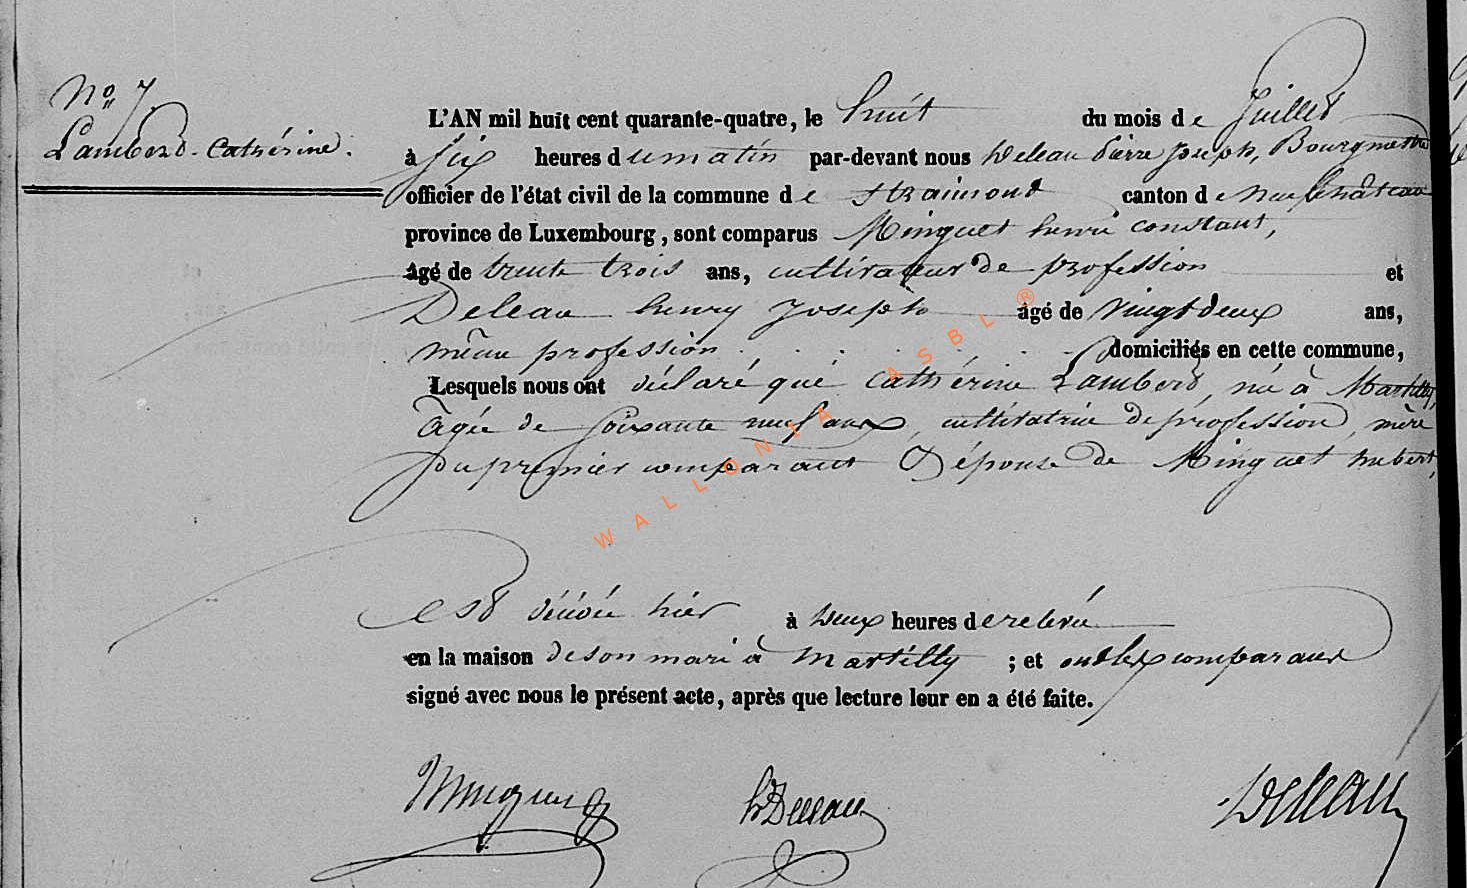 No 7
Lamberd Catherine.
L'AN mil huit cent quarante-quatre, le huit du mois de Juillet
à six heures du matin par-devant nous Deleau Pierre Joseph, Bourgmestre
officier de l'état civil de la commune de Straimont canton de Neufchâteau
province de Luxembourg, sont comparus Minguet henri constant,
âgé de trente trois ans, cultivateur de profession et
Deleau henry Joseph âgé de vingt deux ans,
même profession domiciliés en cette commune,
Lesquels nous ont déclaré que Cathérine Lamberd, née à Martilly,
âgée de soixante neuf ans, cultivatrice de profession, mère
du premier comparant & épouse de Minguet hubert,
est décédée hier à deux heures de relevée
en la maison de son mari à Martilly ; et ont les comparans
signé avec nous le présent acte, après que lecture leur en a été faite.
Minguet hDeleau Deleau
WALLONIA ASBL ®